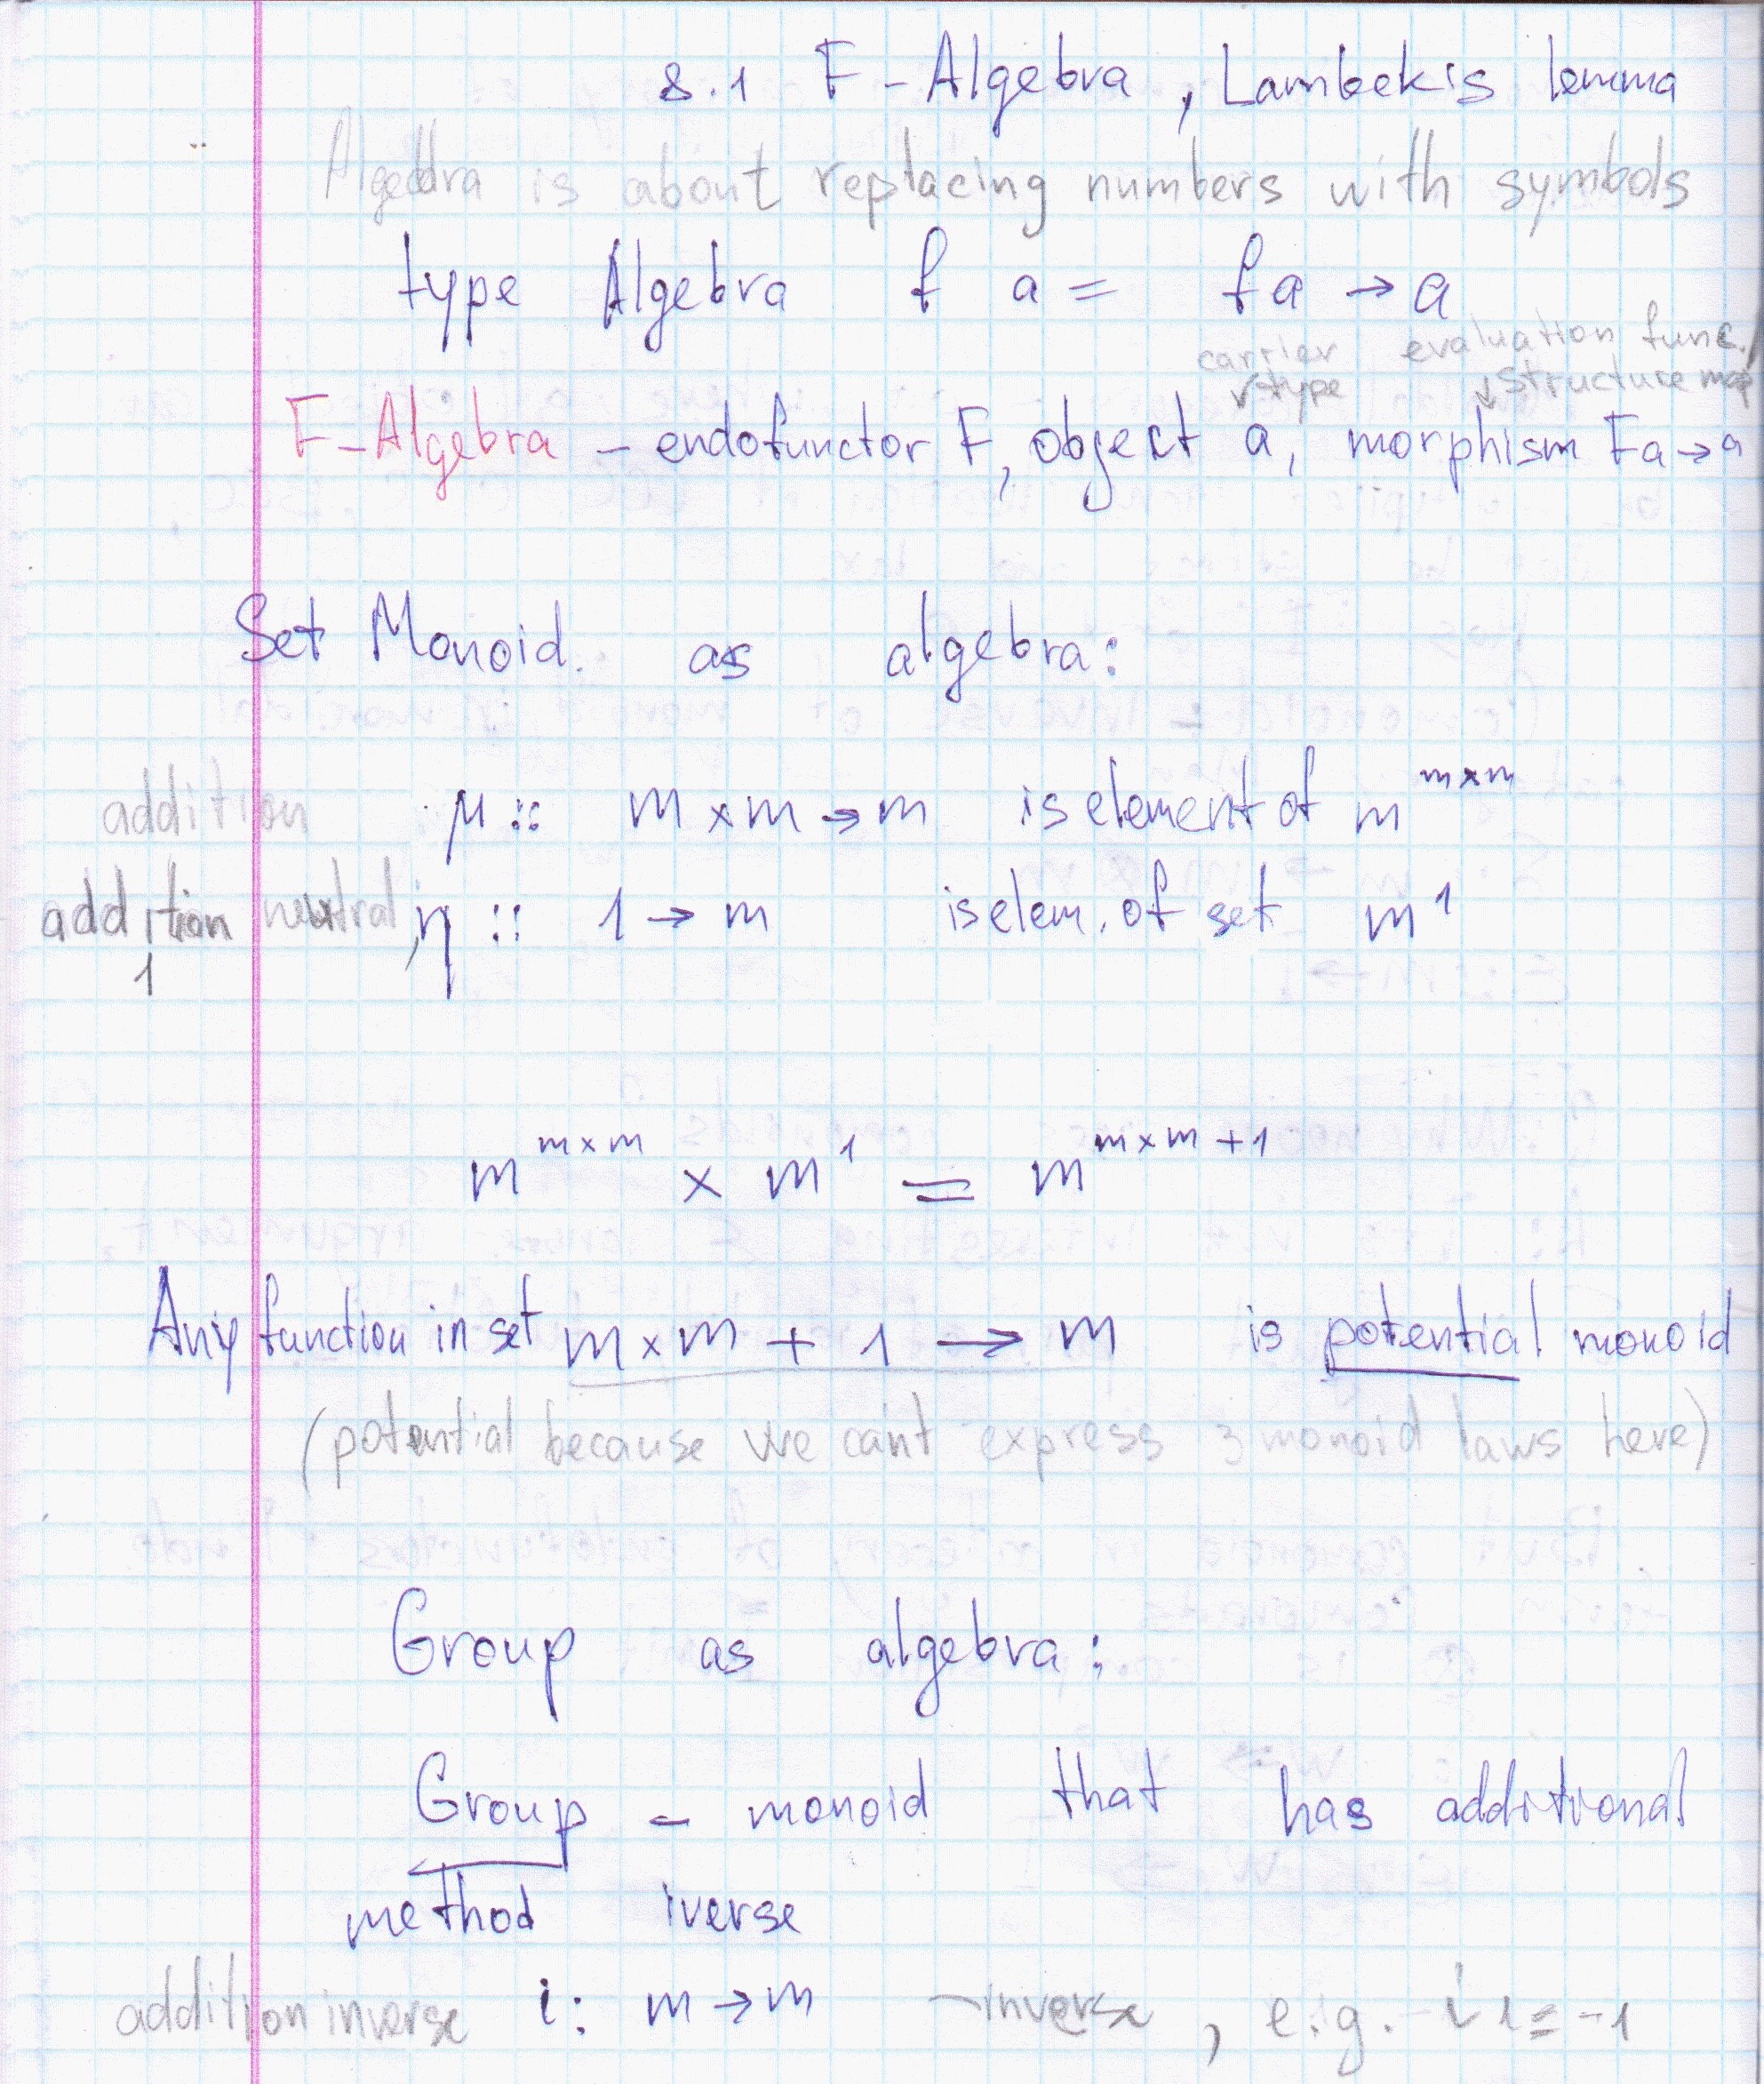 8.1 F-Algebra, Lambekis lemma
Algebra is about replacing numbers with symbols
type Algebra f a = f a → a
carrier type evaluation func./ structure map
F-Algebra - endofunctor F, object a, morphism Fa → a
Set Monoid. as algebra:
addition μ :: m × m → m is element of m^{m×m}
addition neutral, η :: 1 → m is elem. of set m^1
1
m^{m×m} × m^1 = m^{m×m+1}
Any function in set m × m + 1 → m is potential monoid
(potential because we can't express 3 monoid laws here)
Group as algebra:
Group - monoid that has additional
method iverse
addition inverse i: m → m - inverse, e.g. i 1 = -1